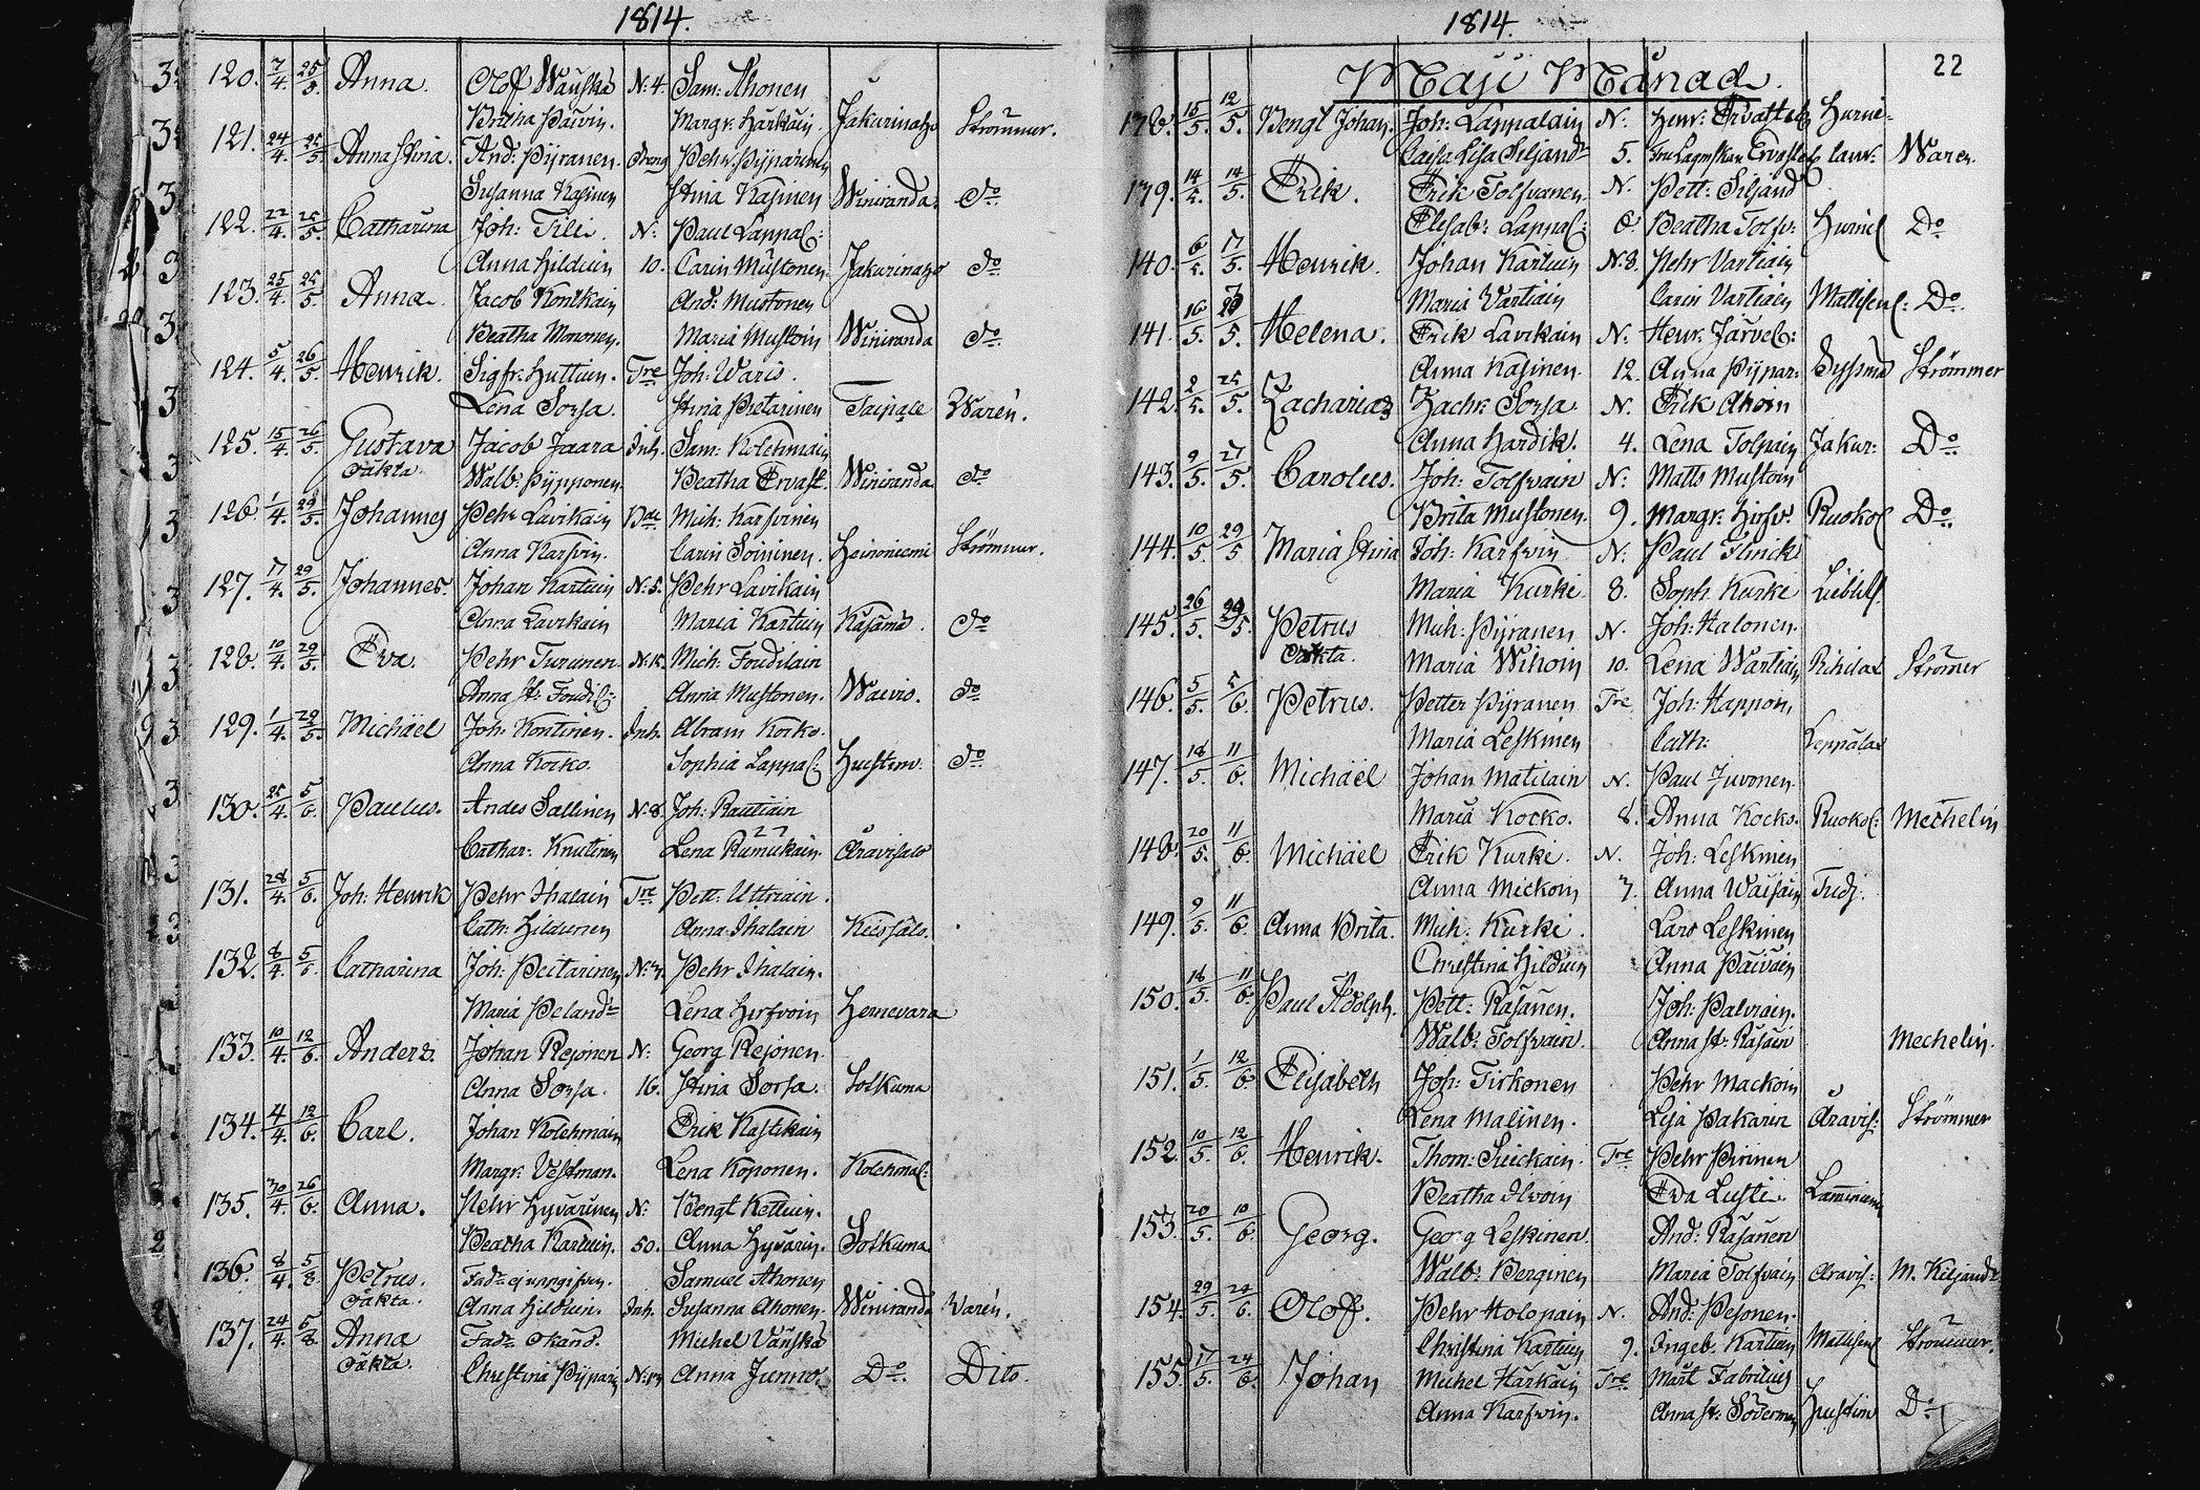 1814.
120. 7/4. 25/5. Anna. Olof Wäuskä N:4. Sam: Ahonen
Britha Päivin. Margr: Härkäin. Jakarinatzo Strömmer.
121. 24/4. 25/5. Anna Stina. And: Pÿranen Dreng Pehr Pÿpärinen
Susanna Kajinen Stina Kajinen Winiranda. do
122. 22/4. 25/5. Catharina Joh: Tili. N: Paul Lappal:
Anna Hilduin 10. Carin Mustonen Jakarinatzo do
123. 25/4. 25/5. Anna. Jacob Kontkain And: Mustonen
Beatha Mononen. Maria Mustoin Winiranda do
124. 5/4. 26/5. Henrik. Sigfr: Huttuin. Tre Joh: Waris.
Lena Sorsa. Stina Pietarinen Taipale Warén.
125. 15/4. 26/5. Gustava Jacob Jaara Inh. Sam: Kolehmain
oäkta. Walb: Pÿpponen. Beatha Ervast. Winiranda do
126. 1/4. 29/5. Johannes Pehr Lavikain Bde Mich: Karfvinen
Anna Karfvin. Carin Soininen. Heinoniemi Strömmer.
127. 17/4. 29/5. Johannes. Johan Kartuin N:5. Pehr Lavikain
Anna Lavikain Maria Kartuin Käsämä. do
128. 10/4. 29/5. Eva. Pehr Turunen. N:15. Mich: Foudilain
Anna St: Foudil: Anna Mustonen. Waivio. do
129. 1/4. 29/5. Michäel Joh: Kontinen. Inh. Abram Kocko.
Anna Kocko. Sophia Lappal: Hustirv. do
130. 25/4. 5/6. Paulus. Andes Sallinen N:8. Joh: Rautiain
Cathar: Knutinen Lena Rumukain. Aravisalo
131. 28/4. 5/6. Joh: Henrik Pehr Ihalain Tre Pett: Uttriain.
Cath: Hildunen Anna Ihalain Keissälo.
132. 8/4. 5/6. Catharina Joh: Peitarinen N:7. Pehr Ihalain.
Maria Pelandr Lena Hirfvoin Hernevara
133. 10/4. 12/6. Anders. Johan Rejonen N: Georg Rejonen.
Anna Sorsa. 16. Stina Sorsa. Sotkuma
134. 4/4. 12/6. Carl. Johan Kolehmain Erik Kastikain
Margr: Vestman. Lena Koponen. Kolehmal:
135. 30/4. 26/6. Anna. Pehr Hyvärinen N: Bengt Kettuin.
Beatha Kartuin. 50. Anna Hyvärin. Sotkuma.
136. 8/4. 5/8. Petrus. Fadr ej uppgifven. Samuel Ahonen
oäkta. Anna Hilduin. Inh. Susanna Ahonen. Winiranda Varén.
137. 24/4. 5/8. Anna Fadr okänd. Michel Vänskä
oäkta. Christina Pÿparin N:13 Anna Junno. Do. Dito.
1814.
22
Maji Månad.
138. 15/5. 12/5. Bengt Johan. Joh: Lappalain N. Henr: Ervast
Caisa Lisa Siljandr 5. Waren.
139. 14/5. 14/5. Erik. Erik Tolfvanen. N. Pett: Siljand
Elisab: Lappal: 6. Beatha Tolfv: Do
140. 6/5. 17/5. Henrik. Johan Kartuin N:8. Pehr Vartiain
Maria Vartiain Carin Vartiain Do.
141. 16/5. Helena. Erik Lavikain N: Henr: Järvel:
Anna Kajinen. 12. Anna Pÿpar: Sysmä Strömmer
142. 2/5. 25/5. Zacharias Zachr: Sorsa. N. Erik Ahoin
Anna Hardik. 4. Lena Tolpain Jakar: Do
143. 9/5. 27/5. Carolus. Joh: Tolfvain N: Matts Mustoin
Brita Mustonen. 9. Margr: Hirfv. Ruokol Do.
144. 10/5. 29/5 Maria Stina Joh: Karfvin N: Paul Flinck
Maria Kurki 8. Soph: Kurki Liblits.
145. 26/5. 29/5. Petrus Mich: Pÿranen N. Joh: Halonen.
oäkta. Maria Wihoin 10. Lena Wartiain Rihilax Strömer
146. 5/5. 5/6. Petrus. Petter Pÿranen Tre. Joh: Happon,
Maria Leskinen Cath: Leppälax
147. 18/5. 11/6. Michäel Johan Matilain N. Paul Juvonen.
Maria Kocko. 8. Anna Kocko. Ruokol: Mechelin
148. 20/5. 11/6. Michäel Erik Kurki. N. Joh: Leskinen
Anna Mickoin 7. Anna Waisain
149. 9/5. 11/6. Anna Brita. Mich: Kurki. Lars Leskinen
Christina Hilduin Anna Päiväin
150. 18/5. 11/6. Paul Adolph. Pett: Räsänen. Joh: Palviain.
Walb: Tolfvain. Anna St: Räsäin Mechelin.
151. 1/5. 12/6 Elisabeth Joh: Tirkonen Pehr Mackoin
Lena Malinen. Lisa Pakarin Aravis: Strömmer
152. 10/5. 12/6. Henrik. Thom: Sieickain. Tre Pehr Piirinen
Beatha Ilvoin Eva Lusti. Lamminiemi
153. 20/5. 10/6. Georg. Georg Leskinen. And: Räsänen
Walb: Berginen Maria Tolfvain Aravis: M. Kiljandr.
154. 29/5. 24/6. Olof. Pehr Holopain N. And: Pesonen.
Christina Kartuin 9. Ingeb. Kartuin Mattisenl Strömmer.
155. 17/5. 24/6. Johan Michel Härkäin Tre. Mårt Fabritius
Anna Karfvin. Anna St: Söderman Hustirv D:o